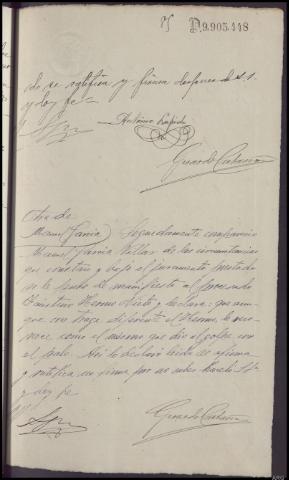 D.9.905.448
do se ratifica y firma despues de S.S.
y doy fe=
Antonio
Gerardo
Otra de
Manuel Garcia Seguidamente comparecio
Manuel Garcia Villar de las circunstancias
que constan y bajo el juramento prestado
se le puso de manifiesto al procesado
y declara: que aun
que con traje diferente al le reco
noce como el mismo que dio el golpe con
el palo. Asi lo declaró leida se afirma
y ratifica no firma por no saber hacelo S.Sª
y doy fe
Gerardo